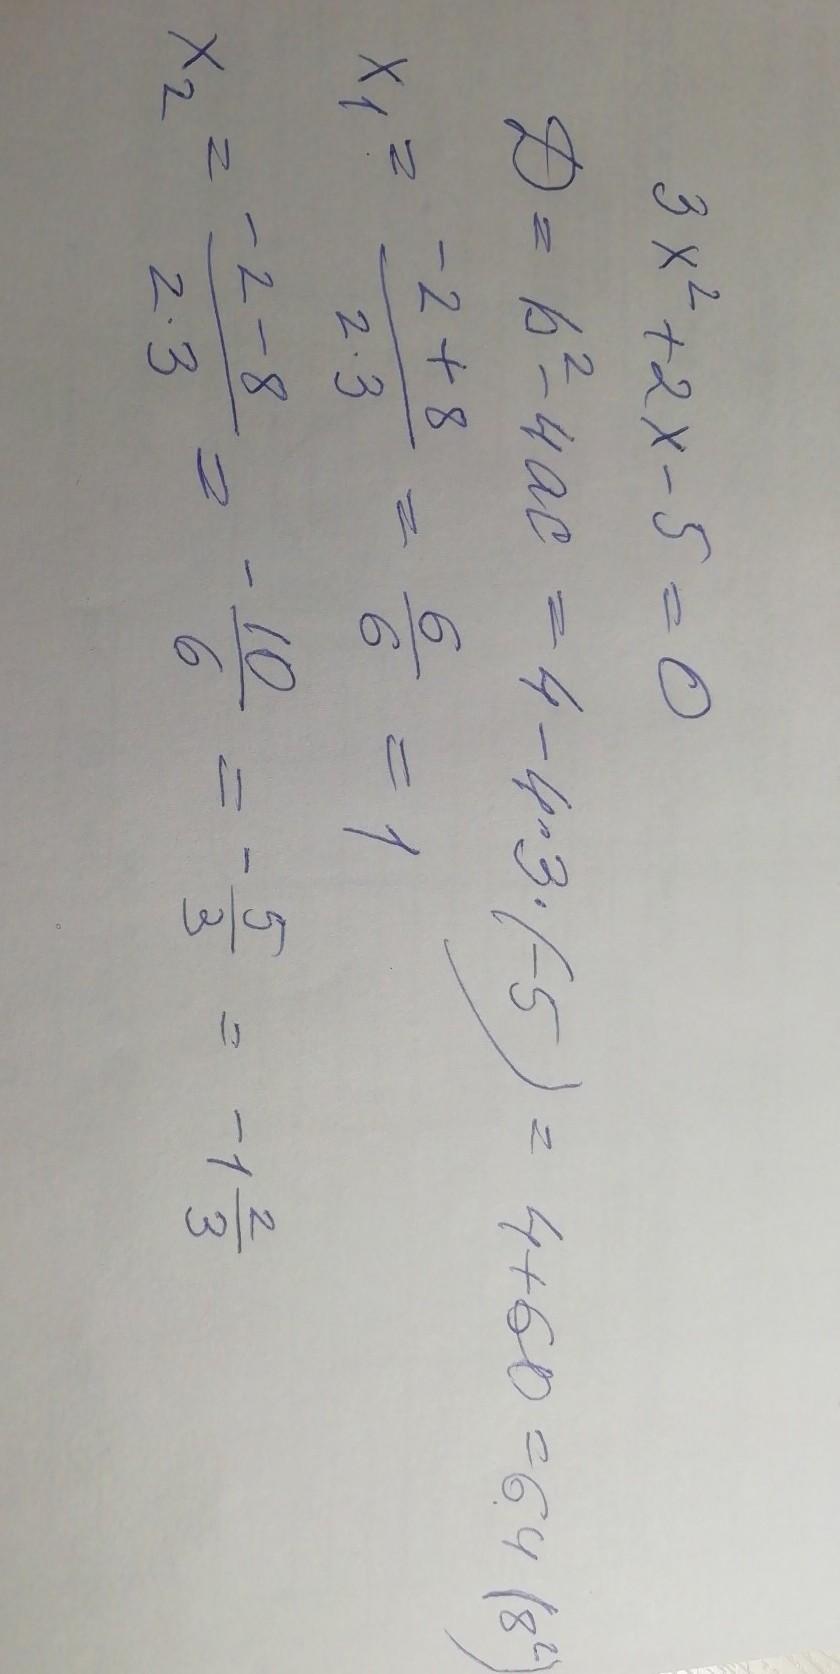 3x² + 2x - 5 = 0
D = b² - 4ac = 4 - 4·3·(-5) = 4 + 60 = 64 (8²)
x₁ = (-2 + 8)/(2·3) = 6/6 = 1
x₂ = (-2 - 8)/(2·3) = -10/6 = -5/3 = -1 2/3